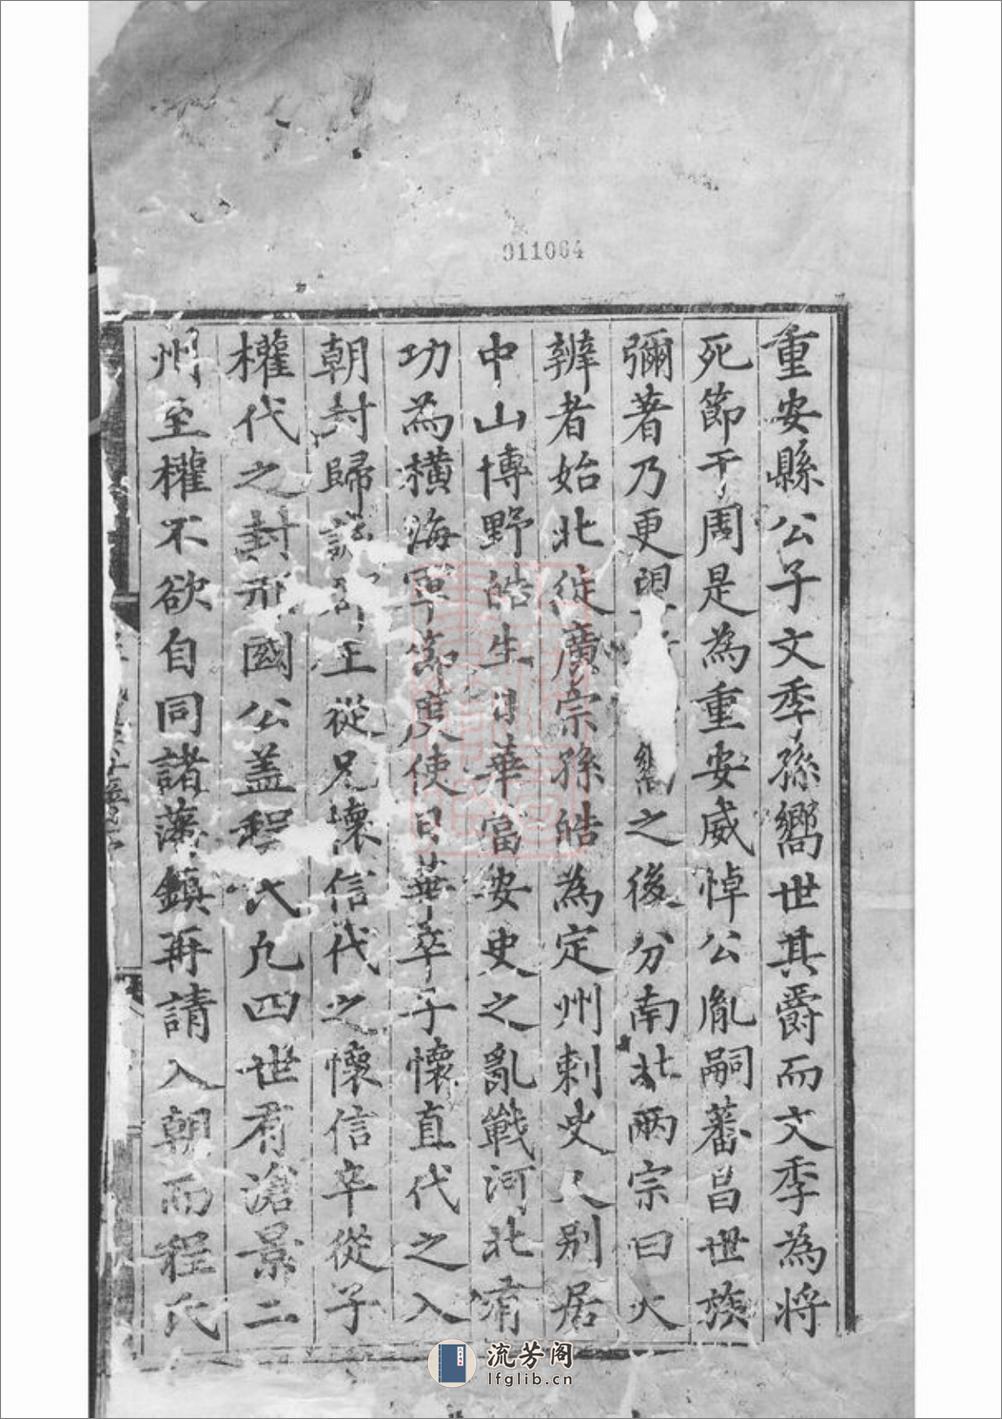 011064
重安縣公子文季孫嚮世其爵而文季為將
死節于周是為重安威悼公胤嗣蕃昌世族
彌著乃更嚮之後分南北兩宗曰火
辨者始北徙廣宗孫皓為定州刺史人别居
中山博野皓生日華當安史之亂戰河北有
功為橫海軍節度使日華卒子懷直代之入
朝封歸王從兄懷信代之懷信卒從子
權代之封邢國公盖程氏凢四世有滄景二
州至權不欲自同諸藩鎮再請入朝而程氏
流芳阁
lfglib.cn